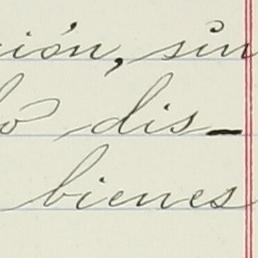 ión, sin
ó dis-
bienes